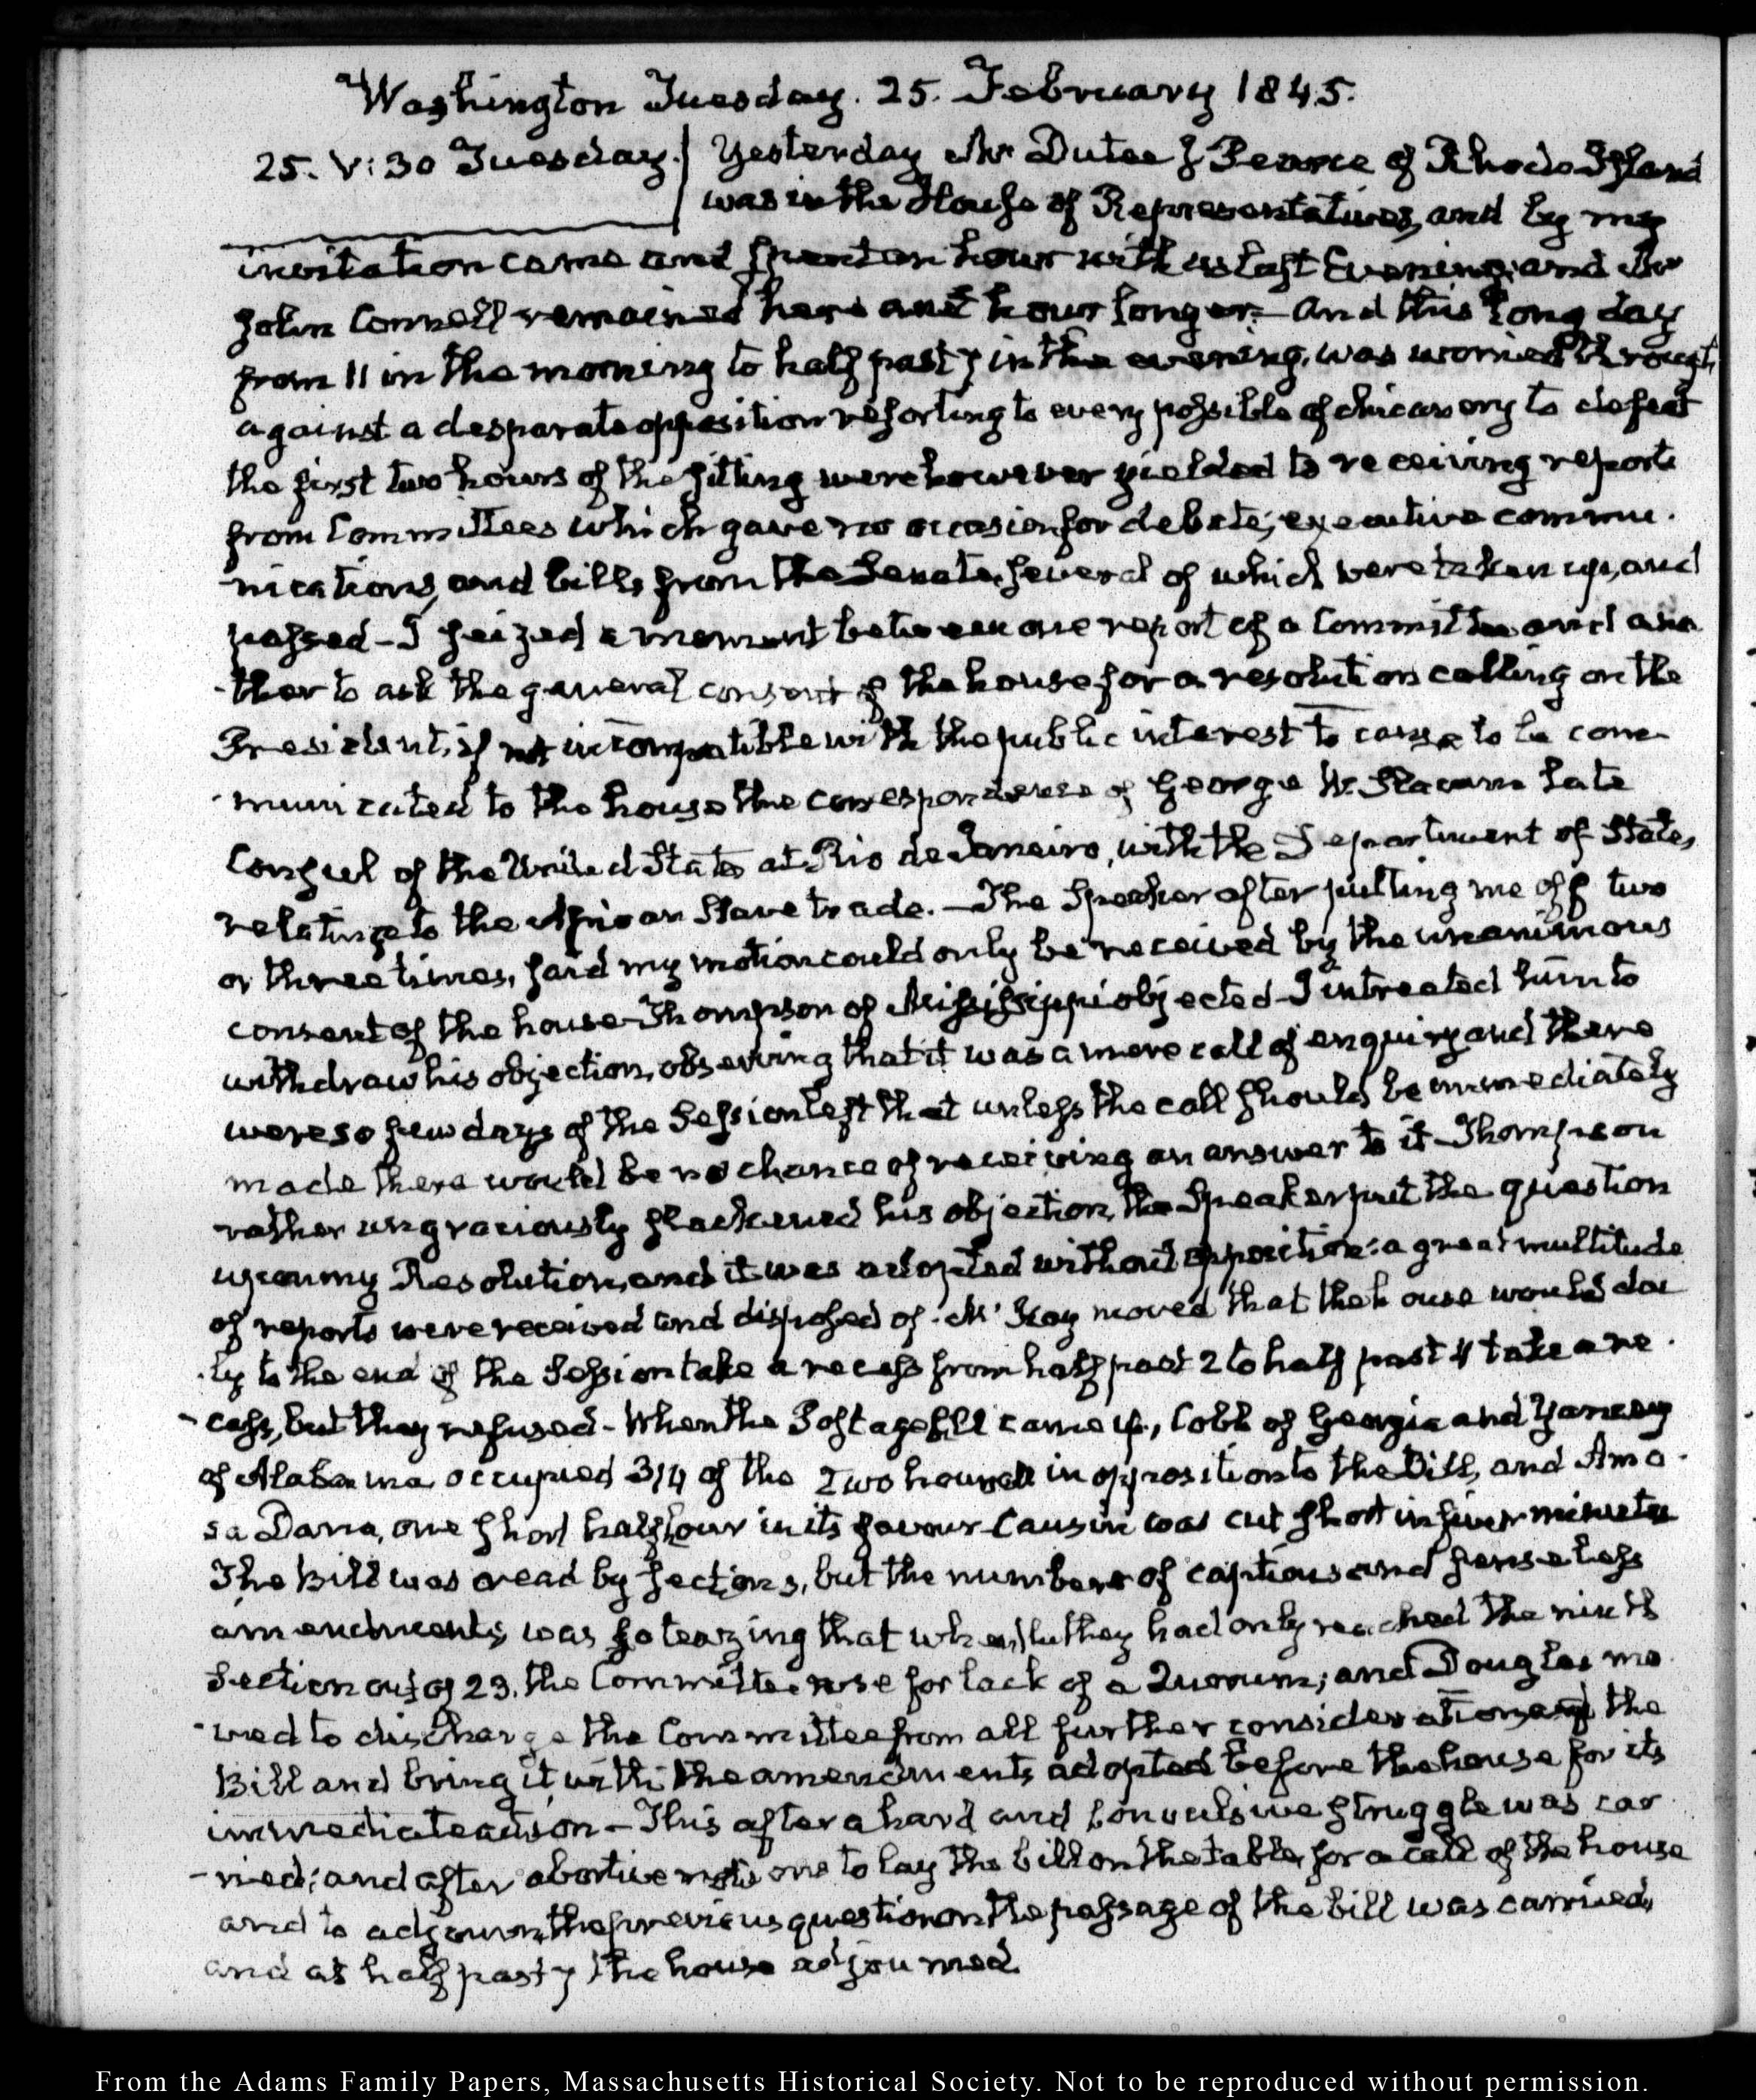 Washington Tuesday. 25. February 1845.
25. V:30 Tuesday. Yesterday Mr Dutee J Pearce of Rhode-Island
was in the House of Representatives, and by my
invitation came and spent an hour with us last Evening; and Mr
John Connell remained here an hour longer. — And this long day
from 11 in the morning to half past 7 in the evening, was worried through
against a desparate opposition resorting to every possible of chicanery to defeat
the first two hours of the sitting were however yielded to receiving reports
from Committees which gave no occasion for debate; executive commu-
-nications, and bills from the Senate, several of which were taken up, and
passed — I seized a moment between one report of a Committee and ano
-ther to ask the general consent of the house for a resolution calling on the
President, if not incompatible with the public interest to cause to be com-
-municated to the house the correspondence of George W. Slacum late
Consul of the United States at Rio de Janeiro, with the Department of State,
relating to the African Slave trade. — The Speaker after putting me off two
or three times, said my motion could only be received by the unanimous
consent of the house — Thompson of Mississippi objected — I intreated him to
withdraw his objection, observing that it was a mere call of enquiry and there
were so few days of the Session left that unless the call should be immediately
made there would be no chance of receiving an answer to it — Thompson
rather ungraciously slackened his objection, the Speaker put the question
upon my Resolution, and it was adopted without opposition: a great multitude
of reports were received and disposed of. McKay moved that the house would dai
-ly to the end of the Session take a recess from half past 2 to half past 4 take a re-
-cess, but they refused — When the Postage bill came up, Cobb of Georgia and Yancey
of Alabama occupied 3/4 of the Two hours in opposition to the Bill, and Ama-
sa Dana, one short half hour in its favour — Causin was cut short in five minutes
The Bill was read by sections, but the numbers of captious and senseless
amendments was so teazing that when they had only reached the ninth
Section out of 23. the Committee rose for lack of a Quorum; and Douglas mo
-ved to discharge the Committee from all further consideration of the
Bill and bring it with the amendments adopted before the house for its
immediate action — This after a hard and convulsive struggle was car
-ried; and after abortive motions to lay the bill on the table, for a call of the house
and to adjourn, the previous question on the passage of the bill was carried,
and at half past 7 the house adjourned.
From the Adams Family Papers, Massachusetts Historical Society. Not to be reproduced without permission.